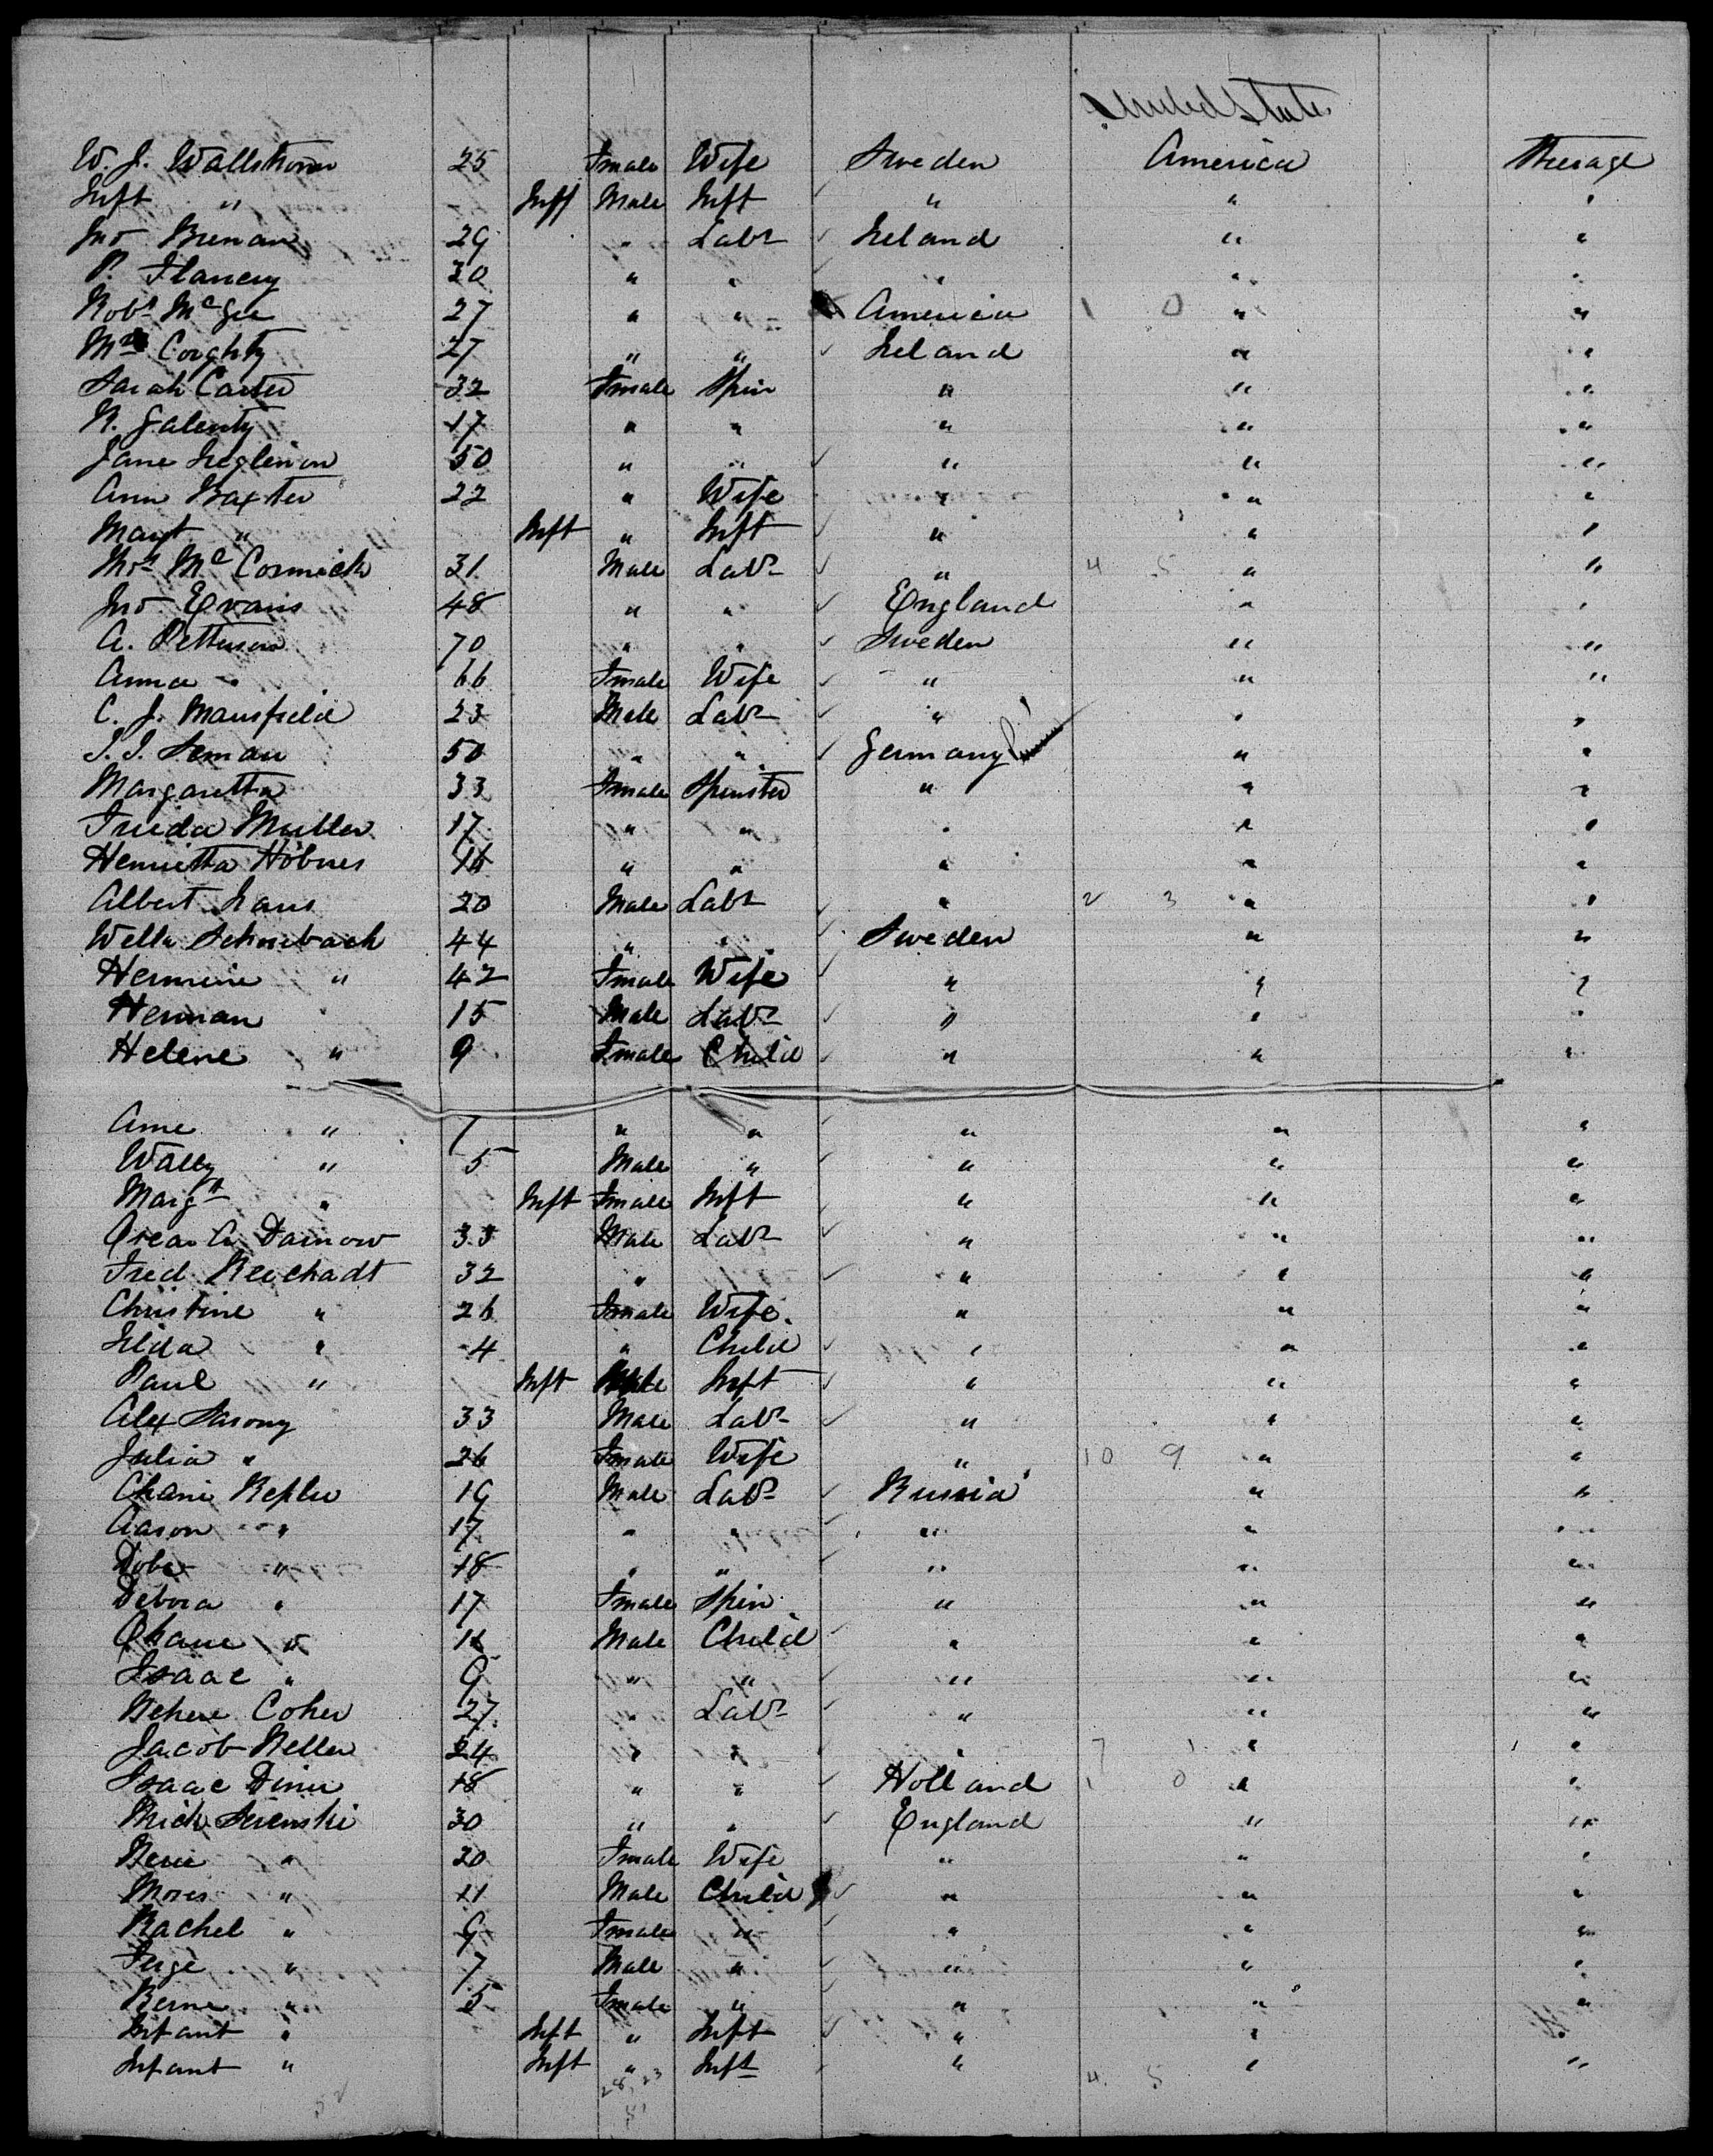 United States
W. J. Wallstrom 25 Fmale Wife Sweden America Steerage
Inft " Inft Male Inft " " "
Jno Brenan 29 " Labr Ireland " "
P. Flanery 20 " " " " "
Robt McGee 27 " " America 1 0 " "
Coughty 27 " " Ireland " "
Sarah Carter 32 Fmale Spin " " "
N. Galenty 17 " " " " "
Jane 50 " " " " "
Ann Baxter 22 " Wife " " "
Margt " Inft " Inft " " "
McCormick 31 Male Labr " 4 5 " "
Jno Evans 48 " " England " "
A. Petterson 70 " " Sweden " "
Anna " 66 Fmale Wife " " "
C. J. Mansfield 23 Male Labr " " "
Seman 50 " " Germany " "
Margaretta 33 Fmale Spinster " " "
Frieda Muller 17 " " " " "
Henrietta Hobnes 16 " " " " "
Albert 20 Male Labr " 2 3 " "
Wella 44 " " Sweden " "
Hermine " 42 Fmale Wife " " "
Herman " 15 Male Labr " " "
Helene " 9 Fmale Child " " "
Ame " 7 " " " " "
Wally " 5 Male " " " "
Margt " Inft Fmale Inft " " "
Oscar A. Darnow 33 Male Labr " " "
Fred Reichadt 32 " " " "
Christine " 26 Fmale Wife. " " "
" 4 " Child " " "
Paul " Inft Male Inft " " "
Alex Sarony 33 Male Labr " " "
Julia " 26 Fmale Wife " 10 9 " "
Chani Kepler 19 Male Labr Russia " "
Aason " 17 " " " " "
Dobe " 18 " " " " "
Debora " 17 Fmale Spin " " "
Chane " 11 Male Child " " "
Isaac " 9 " " " " "
Cohen 27 " Labr " " "
Jacob Keller 24 " " " 7 1 " "
Isaac 18 " " Holland 1 0 " "
30 " " England " "
20 Fmale Wife " " "
Moses " 11 Male Child " " "
Rachel " 9 Fmale " " " "
" 7 Male " " " "
Berne " 5 Fmale " " " "
Infant " Inft " Inft " " "
Infant " Inft " Inft " 4 5 " "
28, 23
51
52